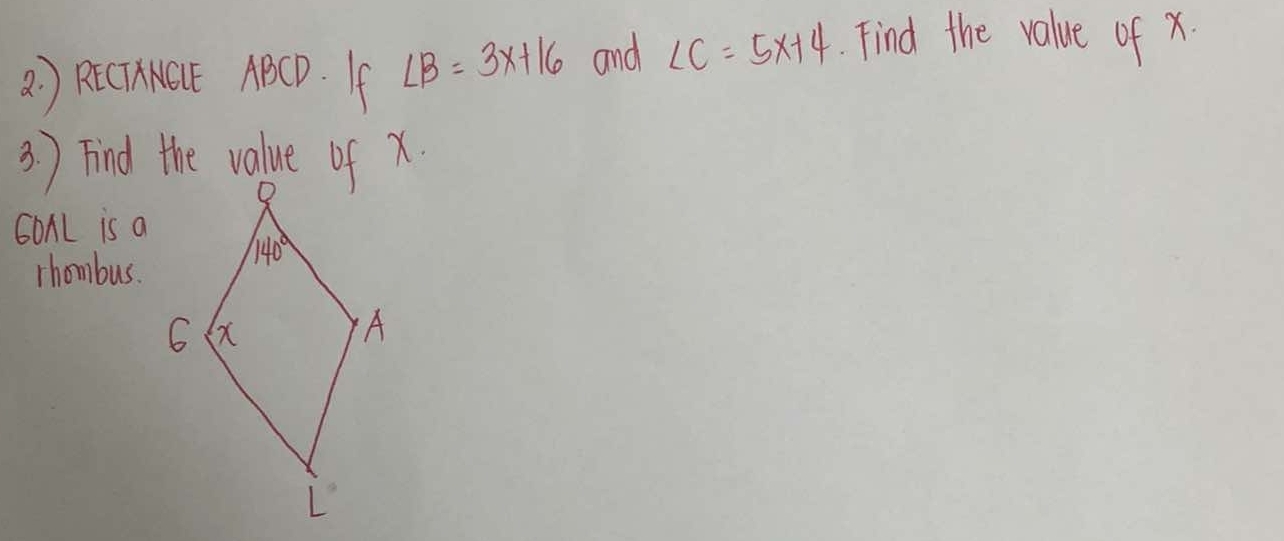 2.) RECTANGLE ABCD. If ∠B = 3x+16 and ∠C = 5x+4. Find the value of x.
3.) Find the value of x.
GOAL is a
rhombus.
O
140°
G x A
L